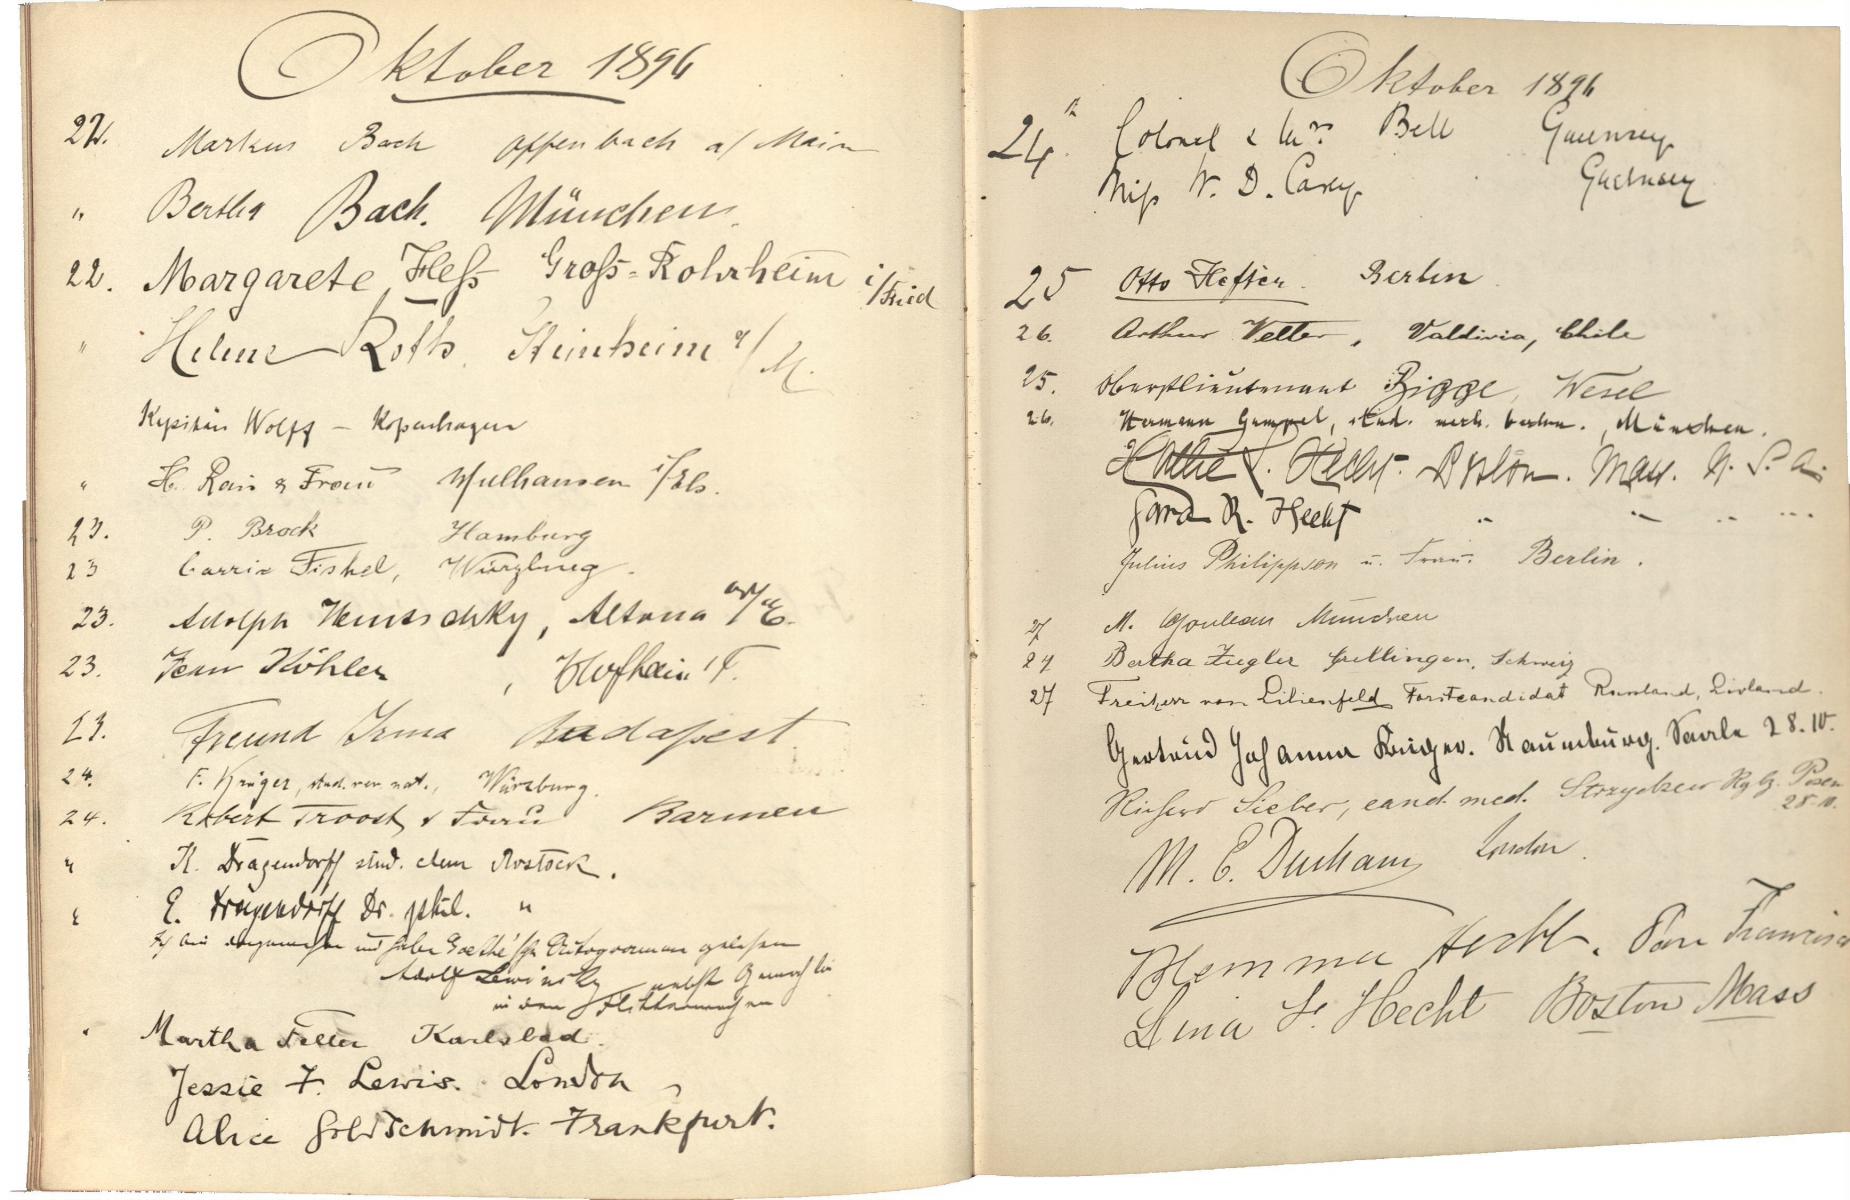 Oktober 1896
22. Markus Bach Offenbach a/ Main
" Bertha Bach. München.
22. Margarete Heß Groß-Rohrheim i/Ried
" Helene Roth. Steinheim a/M.
Kapitän Wolff – Kopenhagen
" H. Rais & Frau Mülhausen i/Els.
23. P. Brock Hamburg
23 Carrie Fishel, Würzburg.
23. Adolph Altona a/E.
23. Jean Köhler, Hofheim i T.
23. Freund Irma Budapest
24. F. Krüger, stud. rer. nat., Würzburg.
24. Robert Troost & Frau Barmen
" K. Dragendorff stud. chem Rostock.
" E. Dragendorff Dr. phil. "
und habe Goethe'sche Autogramme gelesen
Adolf Lewinsky nebst Gemahlin
in den Flitterwochen
" Martha Feller Karlsbad.
Jessie F. Lewis. London
Alice Goldschmidt. Frankfurt.
Oktober 1896
24. Colonel & Mrs Bell Guernsey
Miss W. D. Carey Guernsey
25 Otto Hefter. Berlin
26. Arthur Vetter, Valdivia, Chile
25. Oberstlieutenant Bigge, Wesel
26. Hermann Gumpel, stud. München.
Hattie L. Hecht. Boston. Mass. U. S. A.
Sara R. Hecht " " " "
Julius Philippson u. Frau. Berlin.
27 M. München
27 Bertha Ziegler Grellingen, Schweiz
27 Freiherr von Lilienfeld Forstcandidat Russland, Livland.
Gertrud Johanna Krüger. Naumburg. Saale 28.10.
Richard Sieber, cand. med. Rgbz. Posen
28.10.
M. E. Durham London.
Hemma Hecht. San Francisco
Lina F. Hecht Boston Mass